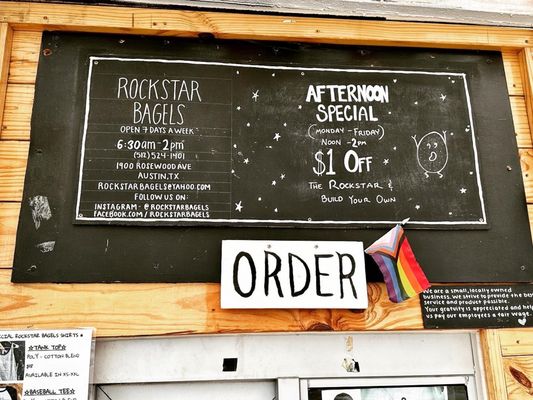 ROCKSTAR
BAGELS
OPEN 7 DAYS A WEEK
6:30am-2pm
(512) 524-1401
1900 ROSEWOOD AVE
AUSTIN, TX
ROCKSTARBAGELS@YAHOO.COM
FOLLOW US ON:
INSTAGRAM - @ROCKSTARBAGELS
FACEBOOK.COM/ROCKSTARBAGELS
AFTERNOON
SPECIAL
MONDAY - FRIDAY
NOON - 2PM
$1 OFF
THE ROCKSTAR &
BUILD YOUR OWN
ORDER
We are a small, locally owned
business. We strive to provide the best
service and product possible.
Your gratuity is appreciated and helps
us pay our employees a fair wage.
SPECIAL ROCKSTAR BAGELS SHIRTS
TANK TOP
POLY - COTTON BLEND
AVAILABLE IN XS-XXL
BASEBALL TEE